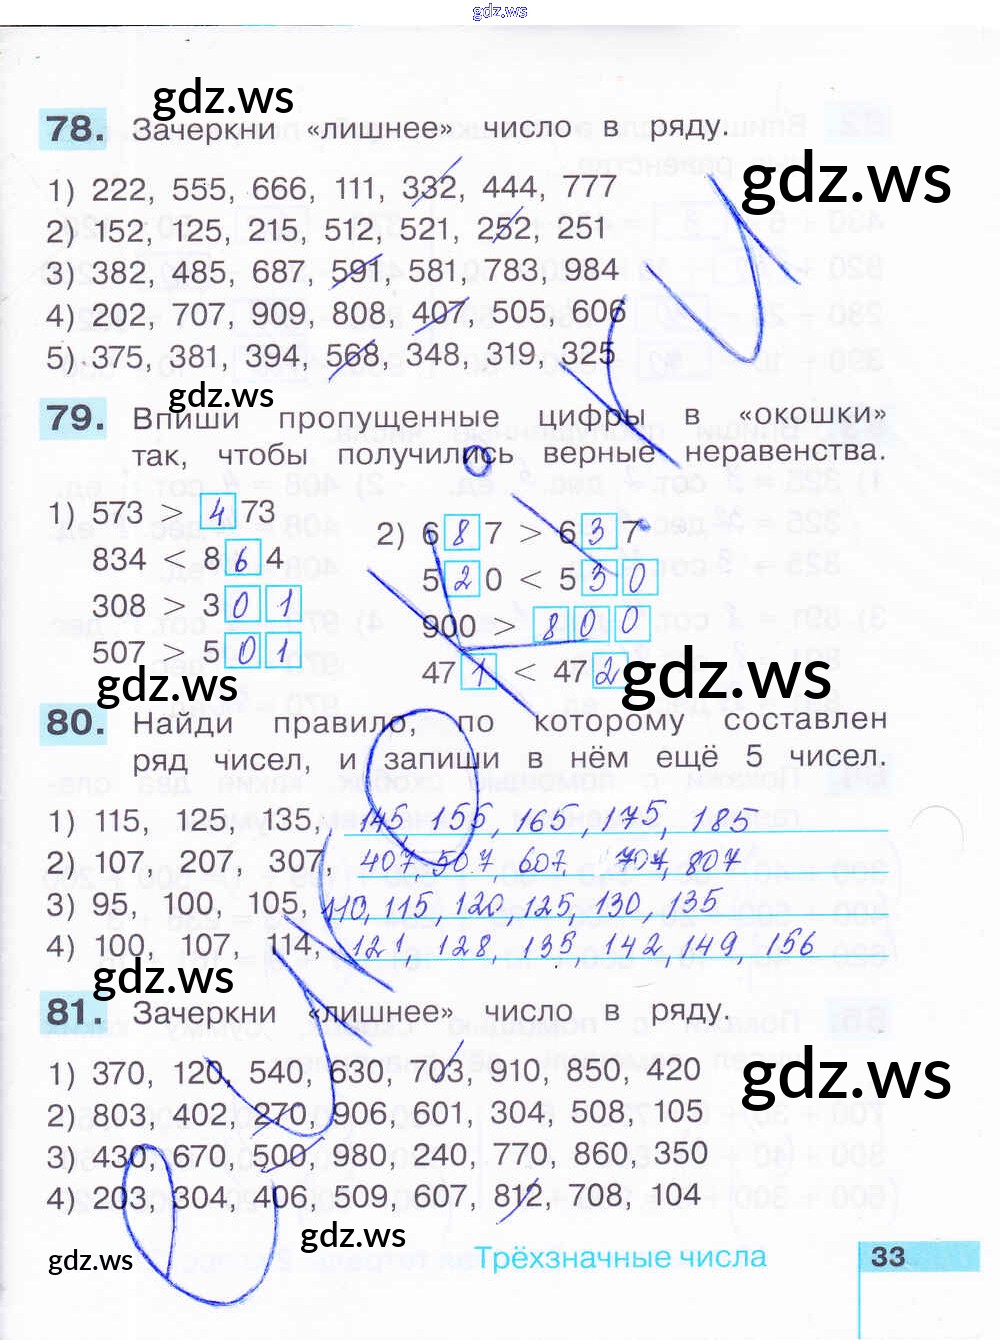 gdz.ws
gdz.ws
78. Зачеркни «лишнее» число в ряду.
gdz.ws
1) 222, 555, 666, 111, 332, 444, 777
2) 152, 125, 215, 512, 521, 252, 251
3) 382, 485, 687, 591, 581, 783, 984
4) 202, 707, 909, 808, 407, 505, 606
5) 375, 381, 394, 568, 348, 319, 325
gdz.ws
79. Впиши пропущенные цифры в «окошки»
так, чтобы получились верные неравенства.
1) 573 > 473
834 < 864
308 > 301
507 > 501
2) 687 > 637
520 < 530
900 > 800
471 < 472
gdz.ws
gdz.ws
80. Найди правило, по которому составлен
ряд чисел, и запиши в нём ещё 5 чисел.
1) 115, 125, 135, 145, 155, 165, 175, 185
2) 107, 207, 307, 407, 507, 607, 707, 807
3) 95, 100, 105, 110, 115, 120, 125, 130, 135
4) 100, 107, 114, 121, 128, 135, 142, 149, 156
gdz.ws
81. Зачеркни «лишнее» число в ряду.
gdz.ws
1) 370, 120, 540, 630, 703, 910, 850, 420
2) 803, 402, 270, 906, 601, 304, 508, 105
3) 430, 670, 500, 980, 240, 770, 860, 350
4) 203, 304, 406, 509, 607, 812, 708, 104
gdz.ws
gdz.ws
Трёхзначные числа 33